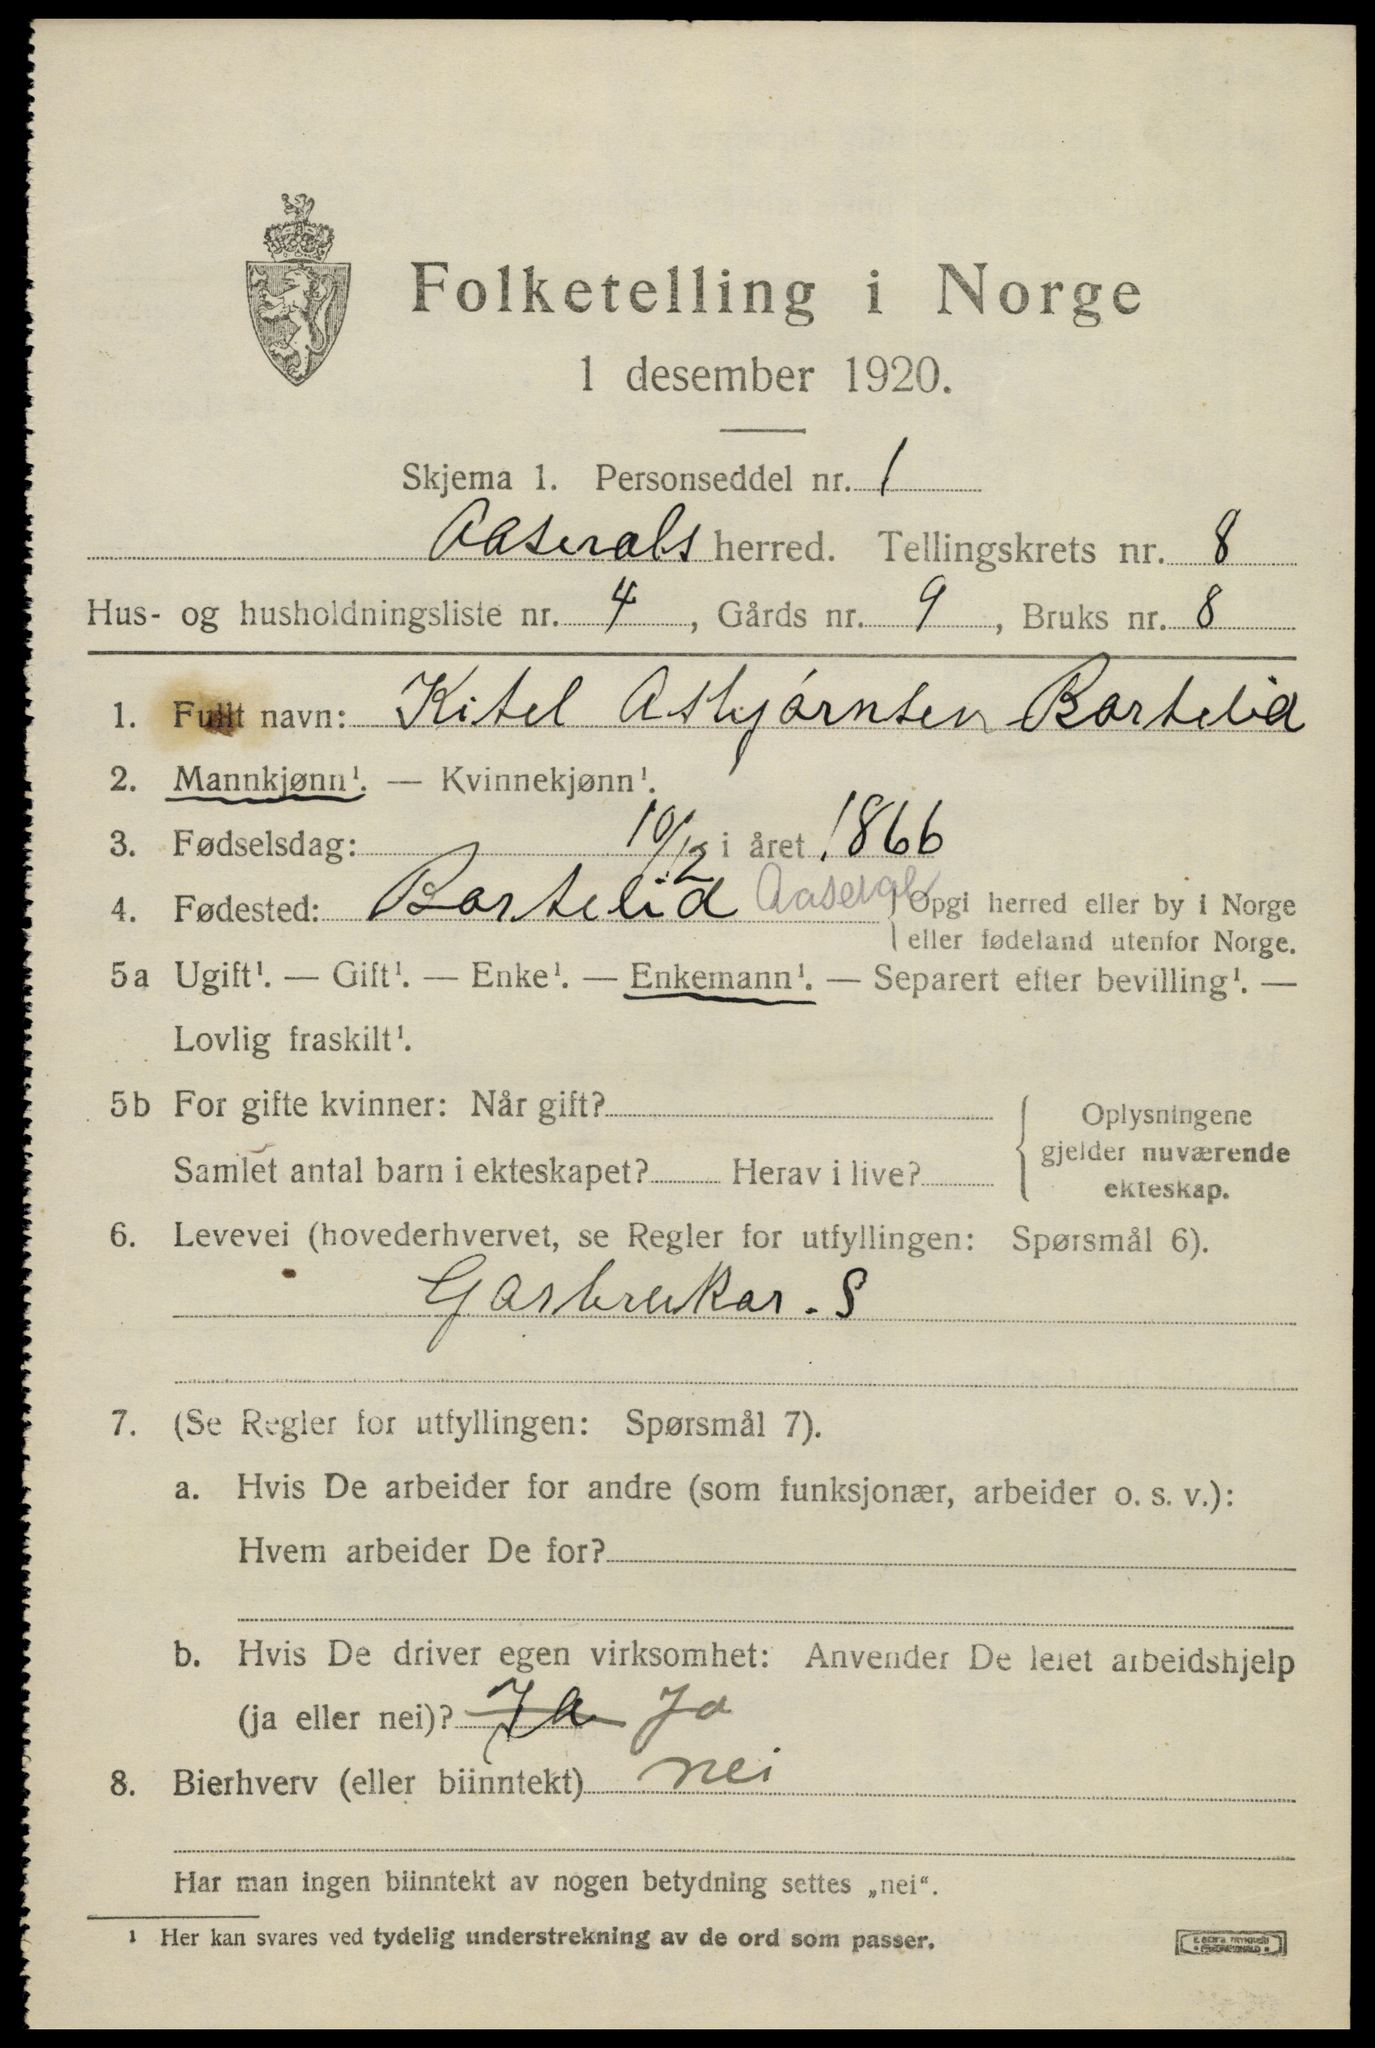 Folketelling i Norge
1 desember 1920.
Skjema 1. Personseddel nr. 1
Aaserals herred. Tellingskrets nr. 8
Hus- og husholdningsliste nr. 4, Gårds nr. 9, Bruks nr. 8
1. Fullt navn: Kitel Asbjørnsen Bortelid
2. Mannkjønn¹. — Kvinnekjønn¹.
3. Fødselsdag: 10/12 i året 1866
4. Fødested: Bortelid Aaseral { Opgi herred eller by i Norge
eller fødeland utenfor Norge.
5a Ugift¹. — Gift¹. — Enke¹. — Enkemann¹. — Separert efter bevilling¹. —
Lovlig fraskilt¹.
5b For gifte kvinner: Når gift?
Samlet antal barn i ekteskapet? Herav i live?
{ Oplysningene
gjelder nuværende
ekteskap.
6. Levevei (hovederhvervet, se Regler for utfyllingen: Spørsmål 6).
Garbrukar. S
7. (Se Regler for utfyllingen: Spørsmål 7).
a. Hvis De arbeider for andre (som funksjonær, arbeider o. s. v.):
Hvem arbeider De for?
b. Hvis De driver egen virksomhet: Anvender De leiet arbeidshjelp
(ja eller nei)? Ja Ja
8. Bierhverv (eller biinntekt) nei
Har man ingen biinntekt av nogen betydning settes „nei“.
1 Her kan svares ved tydelig understrekning av de ord som passer.